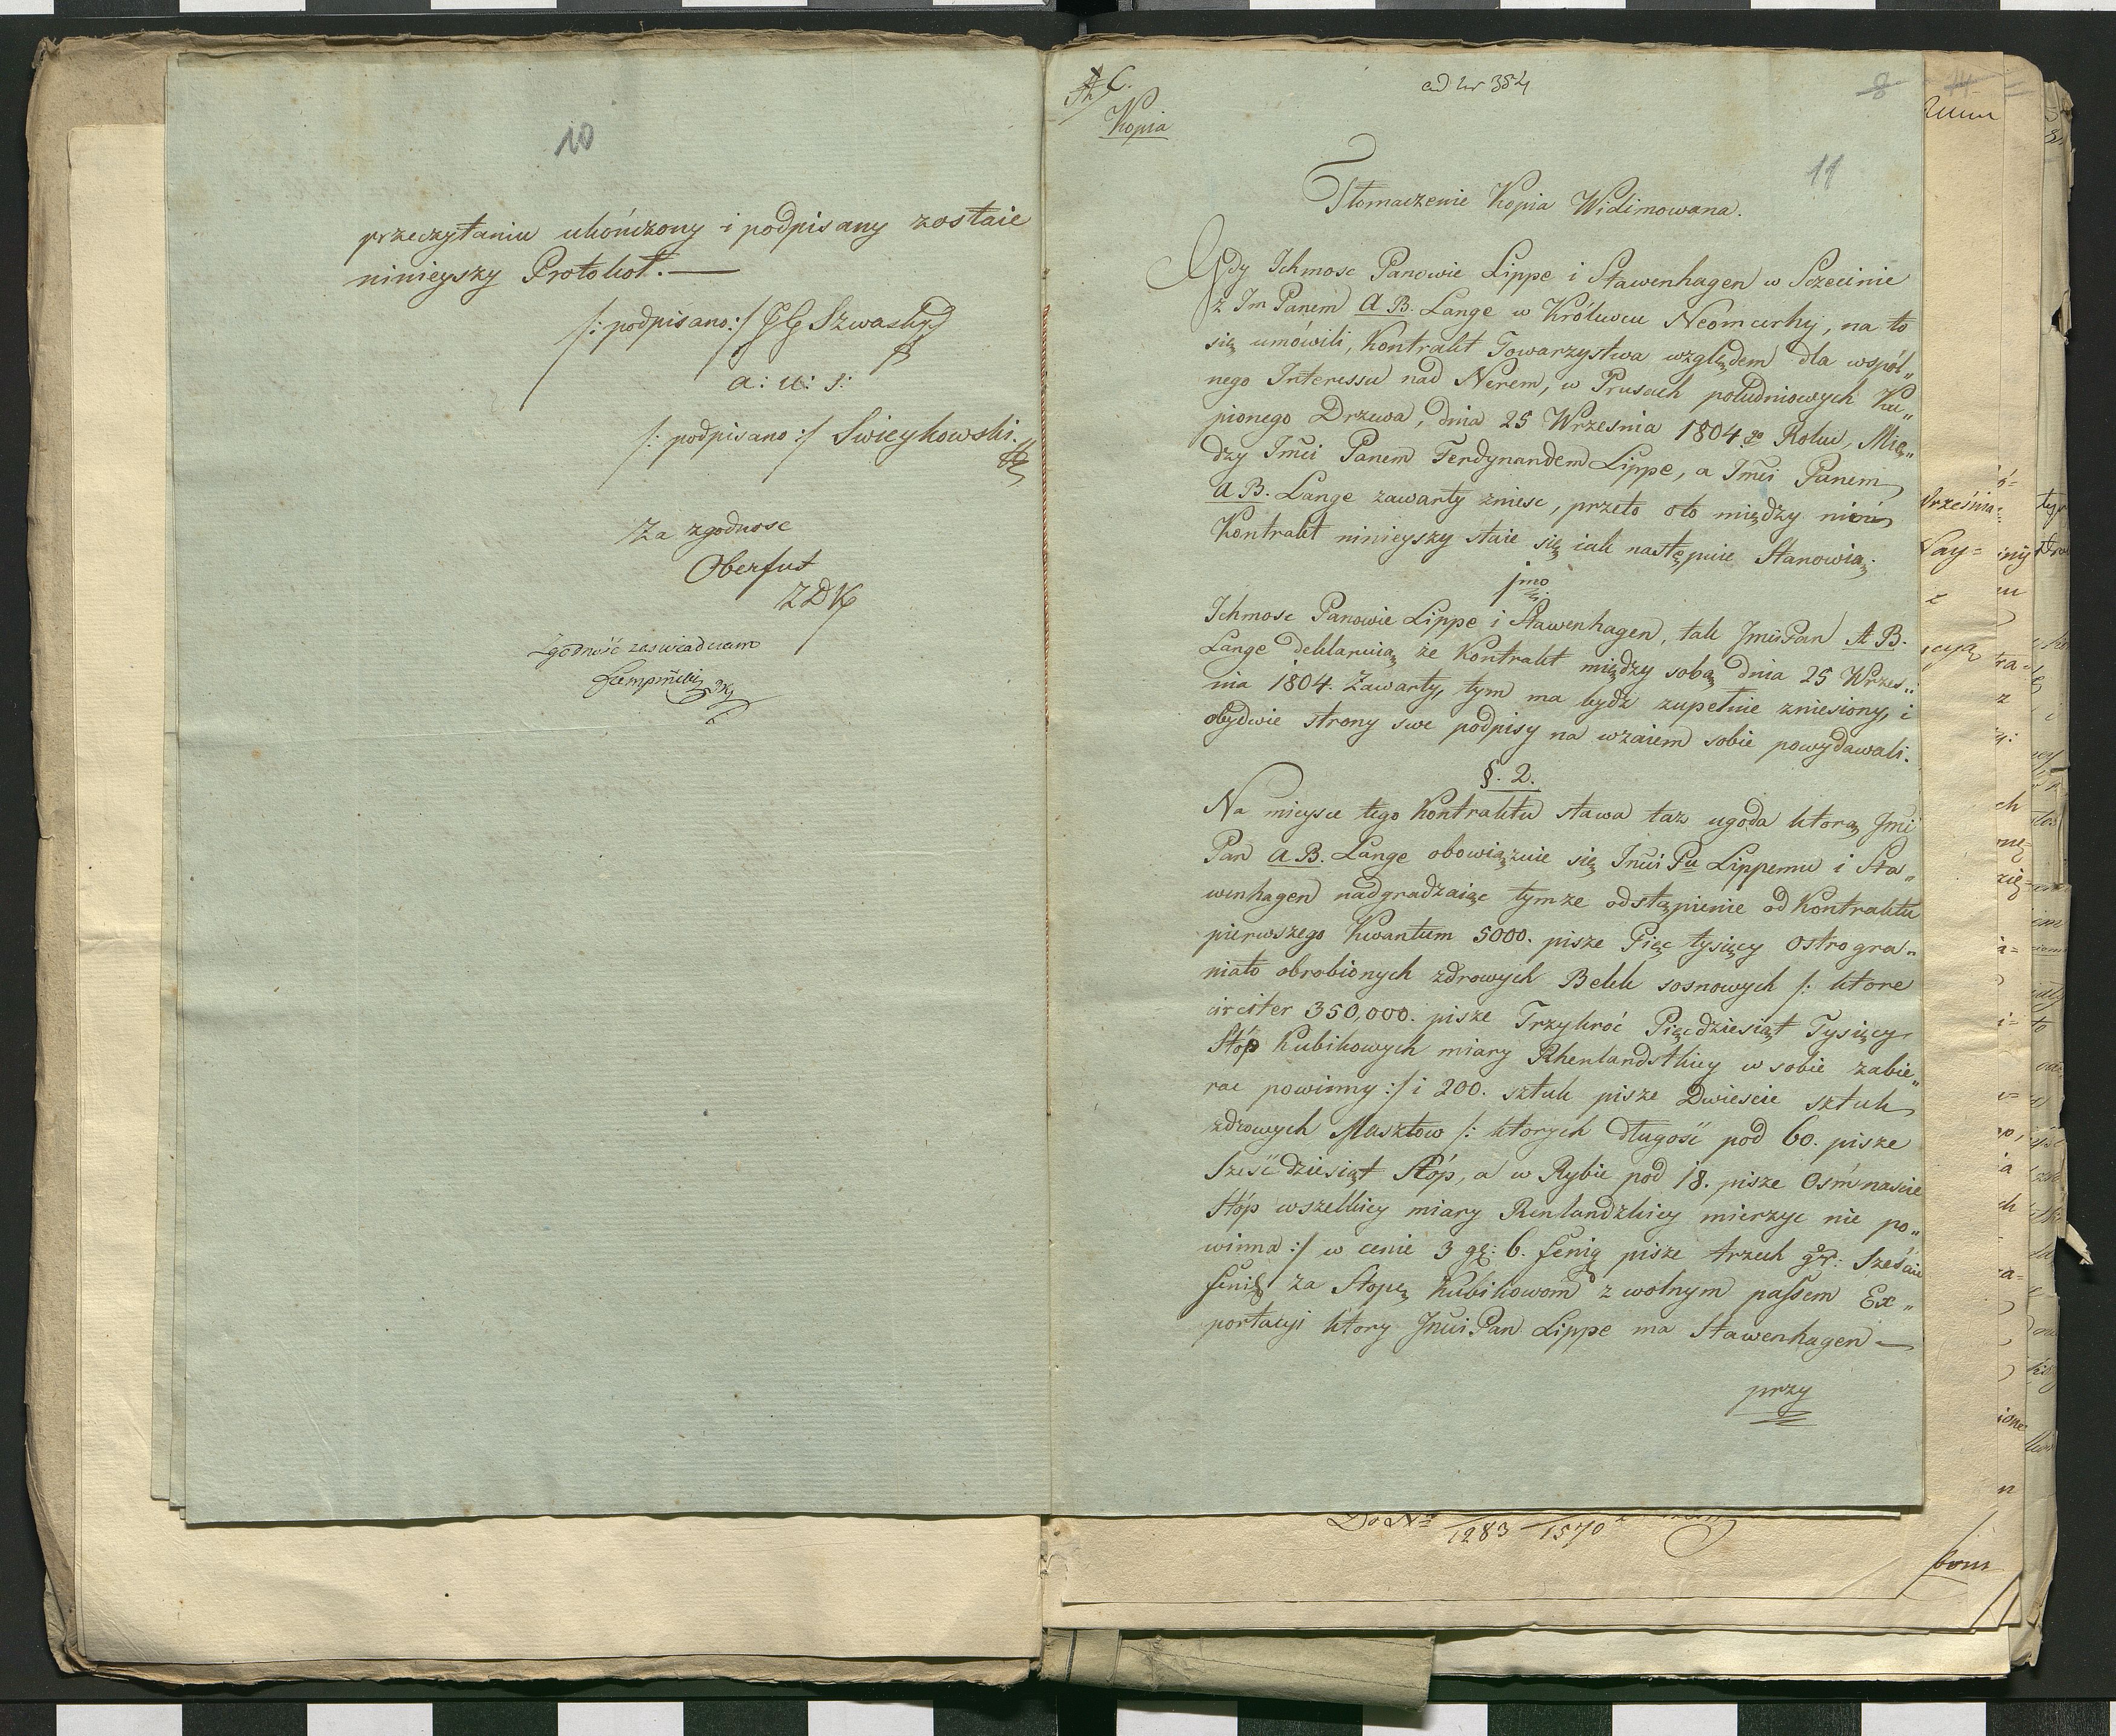 10
przeczytaniu ukończony i podpisany zostaie
ninieyszy Protokoł. —
/: podpisano :/ Szwaski
a: u: s:
/: podpisano :/ Swieykowski.
Za zgodnosc
Oberfust
ZDK
Zgodność zaswiadczam
C.
Kopia
ad Nr 384
8
11
Tłomaczenie Kopia Widimowana.
Gdy Ichmosc Panowie Lippe i Stawenhagen w Szczecinie
z Im Panem A B. Lange w Królewcu Neomarkij, na to
się umówili, Kontrakt Towarzystwa względem dla wspól„
nego Interessu nad Nerem, w Prusach południowych Ku„
pionego Drzewa, dnia 25 Września 1804.go Roku, Mię„
dzy Jmci Panem Ferdynandem Lippe, a Jmci Panem
A B. Lange zawarty zniesc, przeto oto między niemi
Kontrakt ninieyszy staie się iak następuie Stanowią.
jmo
Ichmosc Panowie Lippe i Stawenhagen, tak JmciPan A B.
Lange deklaruią że Kontrakt między sobą dnia 25 Wrzes„
nia 1804. Zawarty, tym ma bydz zupełnie zniesiony, i
obydwie strony swe podpisy na wzaiem sobie powydawali.
§. 2.
Na mieysce tego Kontraktu stawa taz ugoda ktorą Jmci
Pan A B. Lange obowiązuie się Jmci Pu Lippemu i Sta„
wenhagen nadgradzaiąc tymze odstąpienie od Kontraktu
pierwszego Kwantum 5000. pisze Pięc tysięcy ostrogra„
niato obrobionych zdrowych Belek sosnowych /: ktore
circiter 350,000. pisze Trzykroć Pięcdziesiąt Tysięcy
Stóp Kubikowych miary Rhenlandskiey w sobie zabie„
rac powinny :/ i 200. sztuk pisze Dwieście sztuk
zdrowych Masztow /: ktorych długość pod 60. pisze
Sześćdziesiąt Stóp, a w Rybie pod 18. pisze Ośmnaście
Stóp wszelkiey miary Renlandzkiey mierzyc nie po„
winna :/ w cenie 3 gr: 6. fenig pisze trzech gr: Sześciu
fenig za Stopę Kubikowom z wolnym passem Ex„
portacyi ktory JmciPan Lippe ma Stawenhagen —
przy
Do No 1283 1570